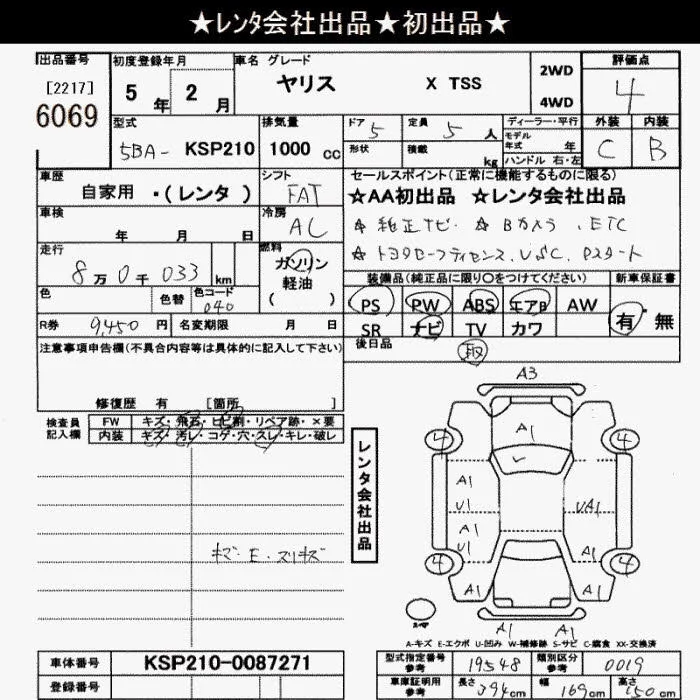 ★レンタ会社出品★初出品★
出品番号 初度登録年月 車名 グレード 評価点
[2217] 5年 2月 ヤリス X TSS 2WD 4
6069 4WD
型式 排気量 ドア 5 定員 5人 ディーラー・平行 外装 内装
5BA- KSP210 1000cc 形状 積載 kg モデル年式 年 C B
ハンドル 右・左
車歴 シフト セールスポイント(正常に機能するものに限る)
自家用 ・(レンタ) FAT ☆AA初出品 ☆レンタ会社出品
車検 年 月 日 冷房 AC ☆純正ナビ ☆Bカメラ、ETC
走行 8万0千033km 燃料 ガソリン 軽油 ( ) ☆トヨタセーフティセンス、VSC、Pスタート
色 色替 色コード 040 装備品(純正品に限り○をつけてください) 新車保証書
PS PW ABS エアB AW 有・無
R券 9,450円 名変期限 月 日 SR ナビ TV カワ
注意事項申告欄(不具合内容等は具体的に記入して下さい) 後日品 取
修復歴 有 [箇所 ]
検査員記入欄 FW キズ・飛石・ヒビ割・リペア跡・×要
内装 キズ・汚レ・コゲ・穴・スレ・キレ・破レ
レンタ会社出品
A3
A1
4 4
A1
U1 UA1
A1
U1
4 4
A1 A1
A1 A1
キズ・E・スリキズ
A-キズ E-エクボ U-凹み W-補修跡 S-サビ C-腐食 XX-交換済
車体番号 KSP210-0087271 型式指定番号 参考 19548 類別区分 参考 0019
登録番号 車庫証明用 参考 長さ 394cm 幅 169cm 高さ 150cm